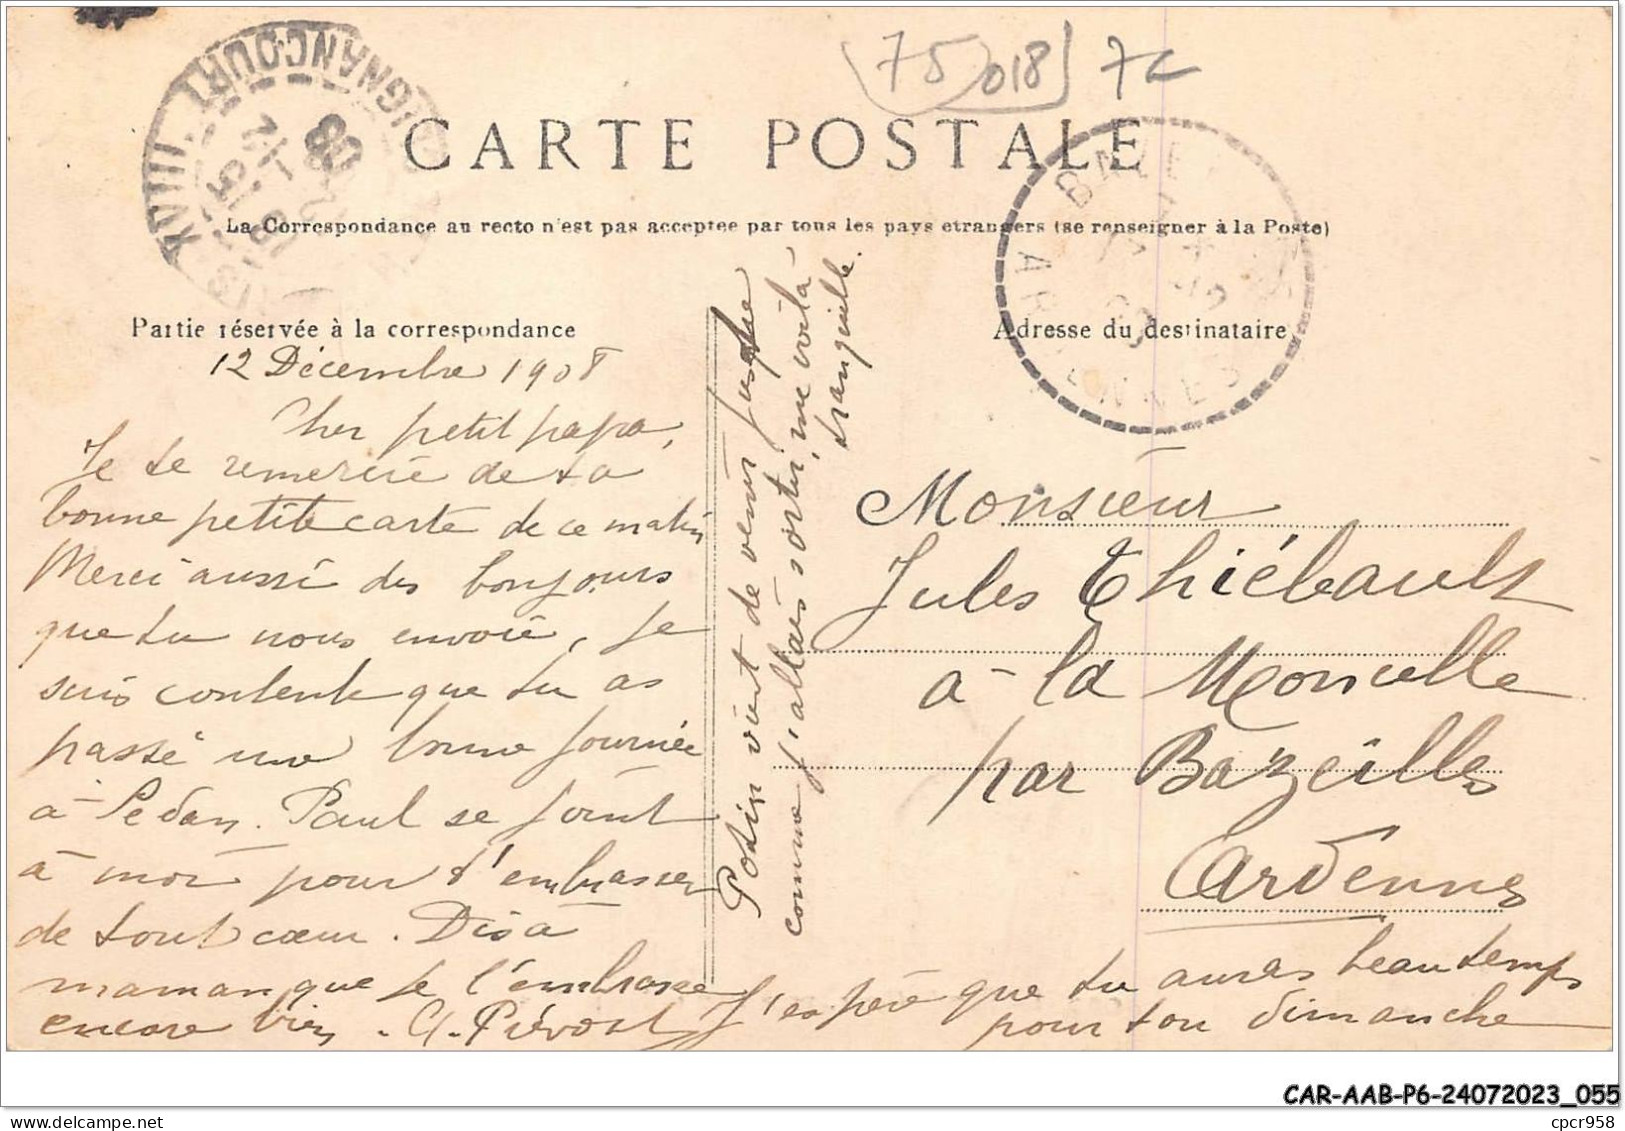 75 018
CARTE POSTALE
La Correspondance au recto n'est pas acceptee par tous les pays etrangers (se renseigner à la Poste)
Partie réservée à la correspondance
12 Décembre 1908
Cher petit papa,
Je te remercie de ta
bonne petite carte de ce matin
Merci aussi des bonjours
que tu nous envoie, je
suis contente que tu as
passé une bonne journée
à Sedan. Paul se joint
à moi pour t'embrasser
de tout cœur. Dis à
maman que je l'embrasse
encore bien. Prévost
J'espère que tu auras beau temps
pour ton dimanche
Potin vient de venir jusque
comme j'allais sortir, me voilà
tranquille.
Adresse du destinataire
Monsieur
Jules Thiébault
à la Moncelle
par Bazeilles
Ardennes
CAR-AAB-P6-24072023_055
cpcr958